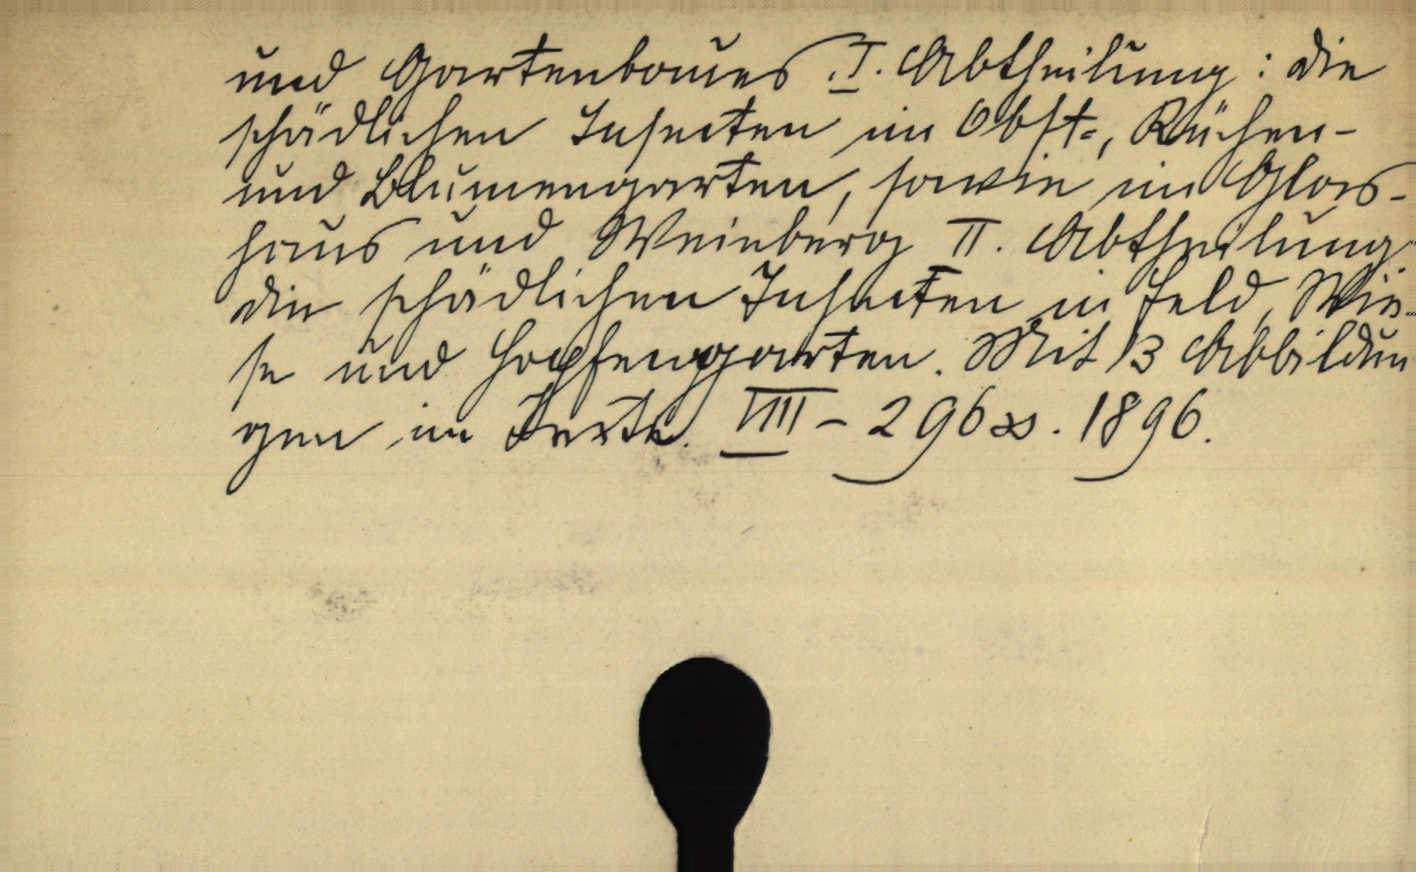 und Gartenbaues I. Abtheilung: die
schädlichen Insecten im Obst-, Küchen-
und Blumengarten, sowie im Glas-
haus und Weinberg II. Abtheilung
die schädlichen Insecten in Feld, Wie-
se und Hopfengarten. Mit 13 Abbildun
gen im Texte. VIII - 296 s. 1896.